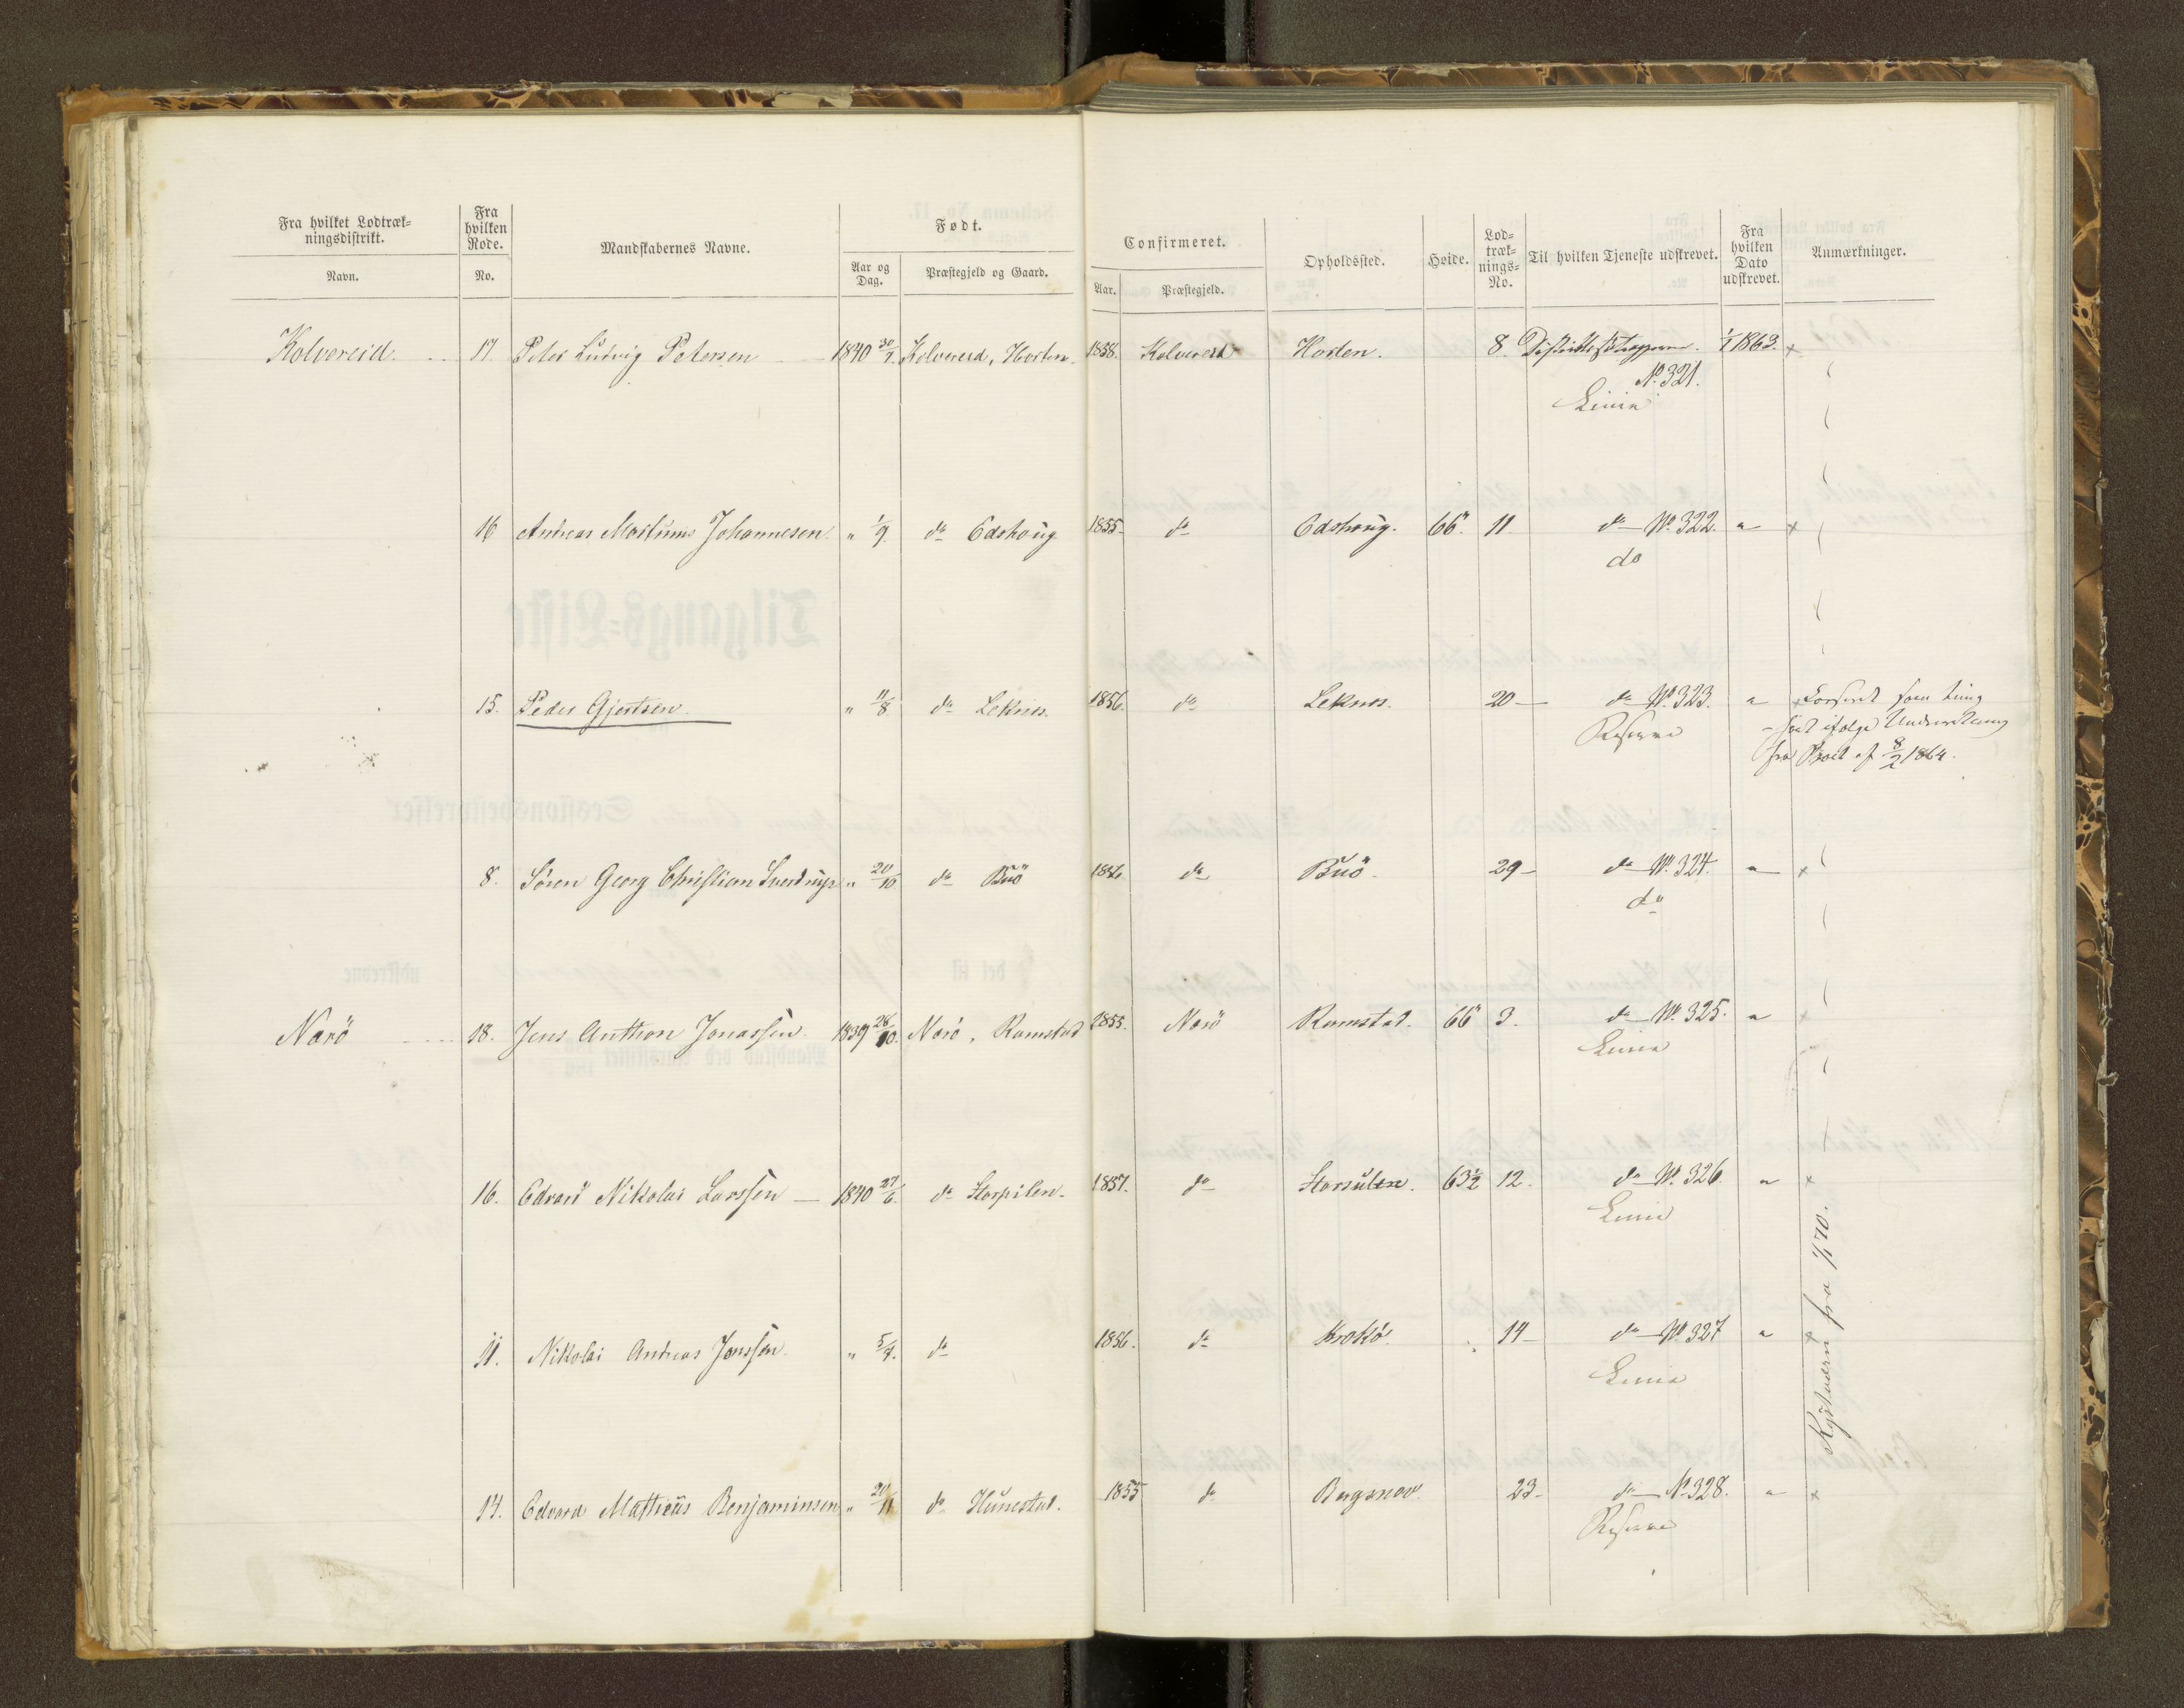 Fra hvilket Lodtræk-
ningsdistrikt.
Navn.
Fra
hvilken
Rode.
No.
Mandskabernes Navne.
Født.
Aar og
Dag.
Præstegjeld og Gaard.
Confirmeret.
Aar.
Præstegjeld.
Opholdssted.
Høide.
Lod-
træk-
nings-
No.
Til hvilken Tjeneste udskrevet.
Fra
hvilken
Dato
udskrevet.
Anmærkninger.
Kolvereid. 17. Peter Ludvig Petersen 1840 30/7. Kolvereid, Horten. 1858. Kolvereid Horten. 8. 1/1 1863. x
No. 321.
Linie
16 Andreas Martinus Johannesen. " 1/9. do Edshoug 1855. do Edshoug. 66". 11. do No. 322. " x
do
15. Peder Gjertsen. " 11/8 do Leknes. 1856. do Leknes. 20 do No. 323. " x
Reserve
fra af 8/2 1864.
8. Sören Georg Christian Sverdrup " 20/10 do Buö do Buö. 29 do No. 324. " x
do
Narö 18. Jens Anthon Jonassen. 1839 28/10. Narö, Ramstad 1855. Narö Ramstad. 66" 3. do No. 325. " x
Linie
16. Edvard Nikolai Larssen 1840 27/6. do 1857. do 63½ 12. do No. 326. " x
Linie
11. Nikolai Andreas Jenssen. " 5/7. do 1856. do Krokö. 14 do No. 327 " x
Linie
14. Edvard Matheus Benjaminsen " 20/11 do Hunestad. 1855 do Bergsnov. 23 do No. 328. " x
Reserve
Kystværn fra 1/1 70.